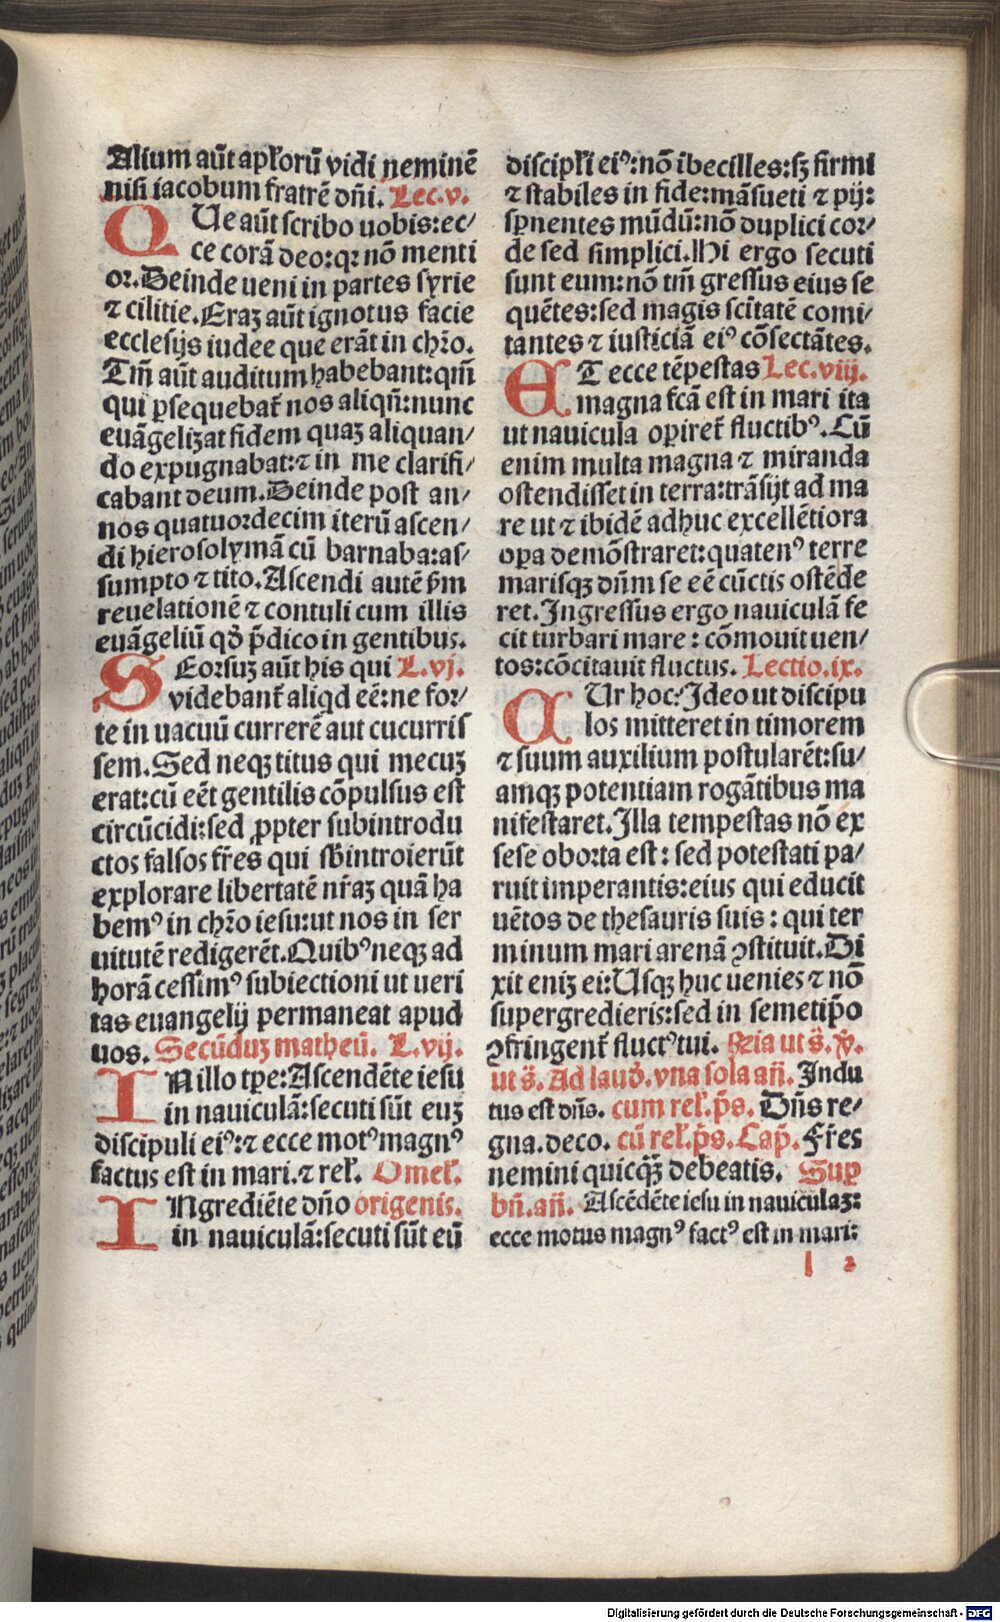 Alium aūt apl'orū vidi neminē
nisi iacobum fratrē dn̄i. Lec.v.
QUe aūt scribo uobis:ec/
ce corā deo:qꝛ nō menti
or.Deinde ueni in partes syrie
⁊ cilitie.Eraʒ aūt ignotus facie
ecclesijs iudee que erāt in chr̄o.
Tm̄ aūt auditum habebant:qm̄
qui ꝑsequebat᷑ nos aliqn̄:nunc
euāgelizat fidem quaʒ aliquan/
do expugnabat:⁊ in me clarifi/
cabant deum.Deinde post an/
nos quatuordecim iterū ascen/
di hierosolymā cū barnaba:as/
sumpto ⁊ tito.Ascendi autē ẜm
reuelationē ⁊ contuli cum illis
euāgeliū qd̄ p̄dico in gentibus.
SEorsuʒ aūt his qui L.vj.
videbant᷑ aliqd eē:ne for/
te in uacuū currerē aut cucurris
sem.Sed neqꝫ titus qui mecuʒ
erat:cū eēt gentilis cōpulsus est
circūcidi:sed ꝓpter subintrodu
ctos falsos fr̄es qui sb̄introierūt
explorare libertatē nr̄aʒ quā ha
bemꝰ in chr̄o iesu:ut nos in ser
uitutē redigerēt.Quibꝰ neqꝫ ad
horā cessimꝰ subiectioni ut ueri
tas euangelij permaneat apud
uos. Secūduʒ matheū. L.vij.
INillo tꝑe:Ascendēte iesu
in nauiculā:secuti sūt euʒ
discipuli eiꝰ:⁊ ecce motꝰ magnꝰ
factus est in mari.⁊ rel'. Omel'.
INgrediēte dn̄o origenis.
in nauiculā:secuti sūt eū
discipl'i eiꝰ:nō ibecilles:sʒ firmi
⁊ stabiles in fide:māsueti ⁊ pij:
sꝑnentes mūdū:nō duplici cor/
de sed simplici.Hi ergo secuti
sunt eum:nō tm̄ gressus eius se
quētes:sed magis scītatē comi/
tantes ⁊ iusticiā eiꝰ cōsectātes.
ET ecce tēpestas Lec.viij.
magna fcā est in mari ita
ut nauicula oꝑiret᷑ fluctibꝰ.Cū
enim multa magna ⁊ miranda
ostendisset in terra:trāsijt ad ma
re ut ⁊ ibidē adhuc excellētiora
oꝑa demōstraret:quatenꝰ terre
marisqꝫ dn̄m se eē cūctis ostēde
ret.Ingressus ergo nauiculā fe
cit turbari mare : cōmouit uen/
tos:cōcitauit fluctus. Lectio.ix.
CUr hoc:Ideo ut discipu
los mitteret in timorem
⁊ suum auxilium postularēt:su/
amqꝫ potentiam rogātibus ma
nifestaret.Illa tempestas nō ex
sese oborta est : sed potestati pa/
ruit imperantis:eius qui educit
uētos de thesauris suis : qui ter
minum mari arenā ꝯstituit.Di
xit eniʒ ei:Usqꝫ huc uenies ⁊ nō
supergredieris:sed in semetip̄o
ꝯfringent᷑ fluctꝰ tui. Feria ut s̄. v̄.
ut s̄. Ad laud'.vna sola an̄. Indu
tus est dn̄s. cum rel'.p̄s. Dn̄s re/
gna.deco. cū rel'.p̄s.Cap̄. Fr̄es
nemini quicqꝫ debeatis. Suꝑ
bn̄.an̄. Ascēdēte iesu in nauiculaʒ:
ecce motus magnꝰ factꝰ est in mari:
l 2